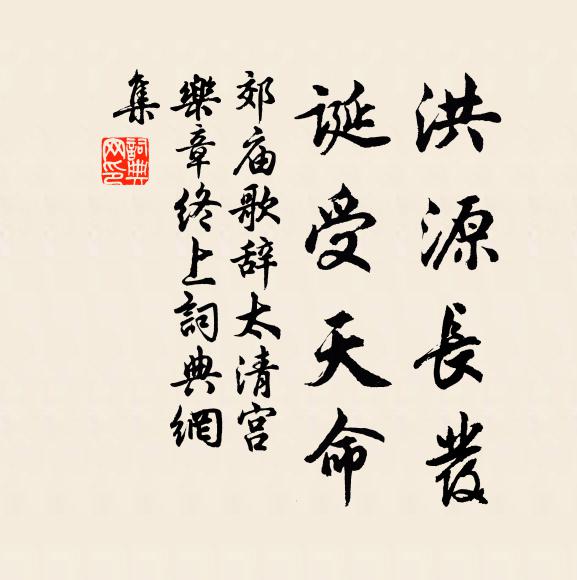 洪源長發
誕受天命
郊庙歌辞太清宫
樂章终上詞典網
集
詞典
网印